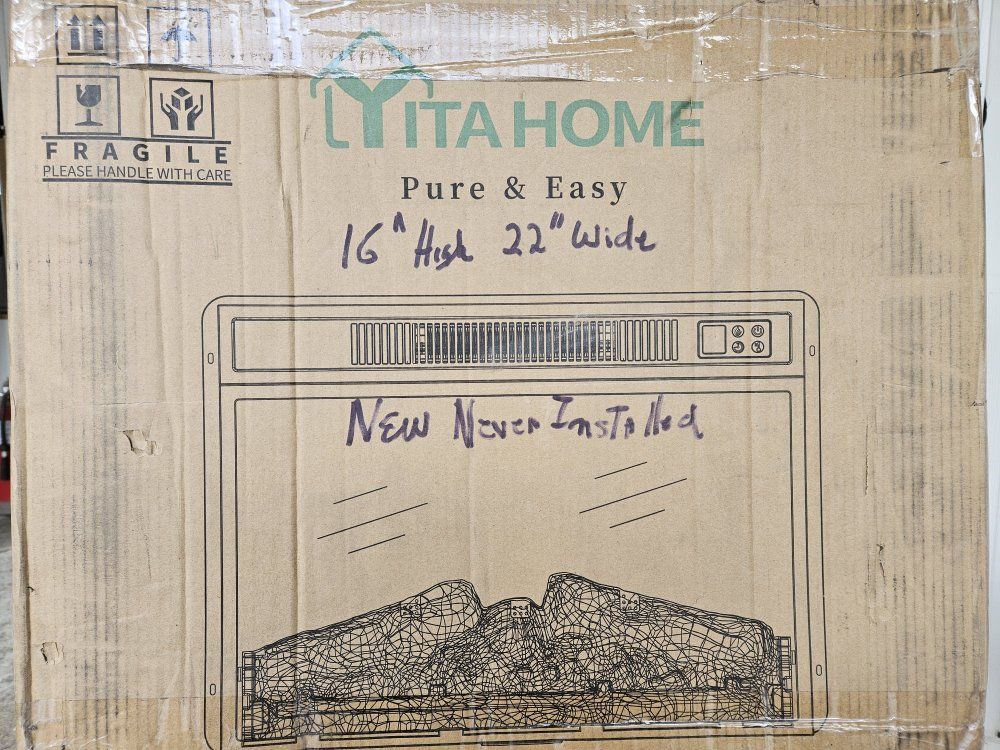 YITAHOME
FRAGILE
PLEASE HANDLE WITH CARE
Pure & Easy
16" High 22" Wide
New Never Installed